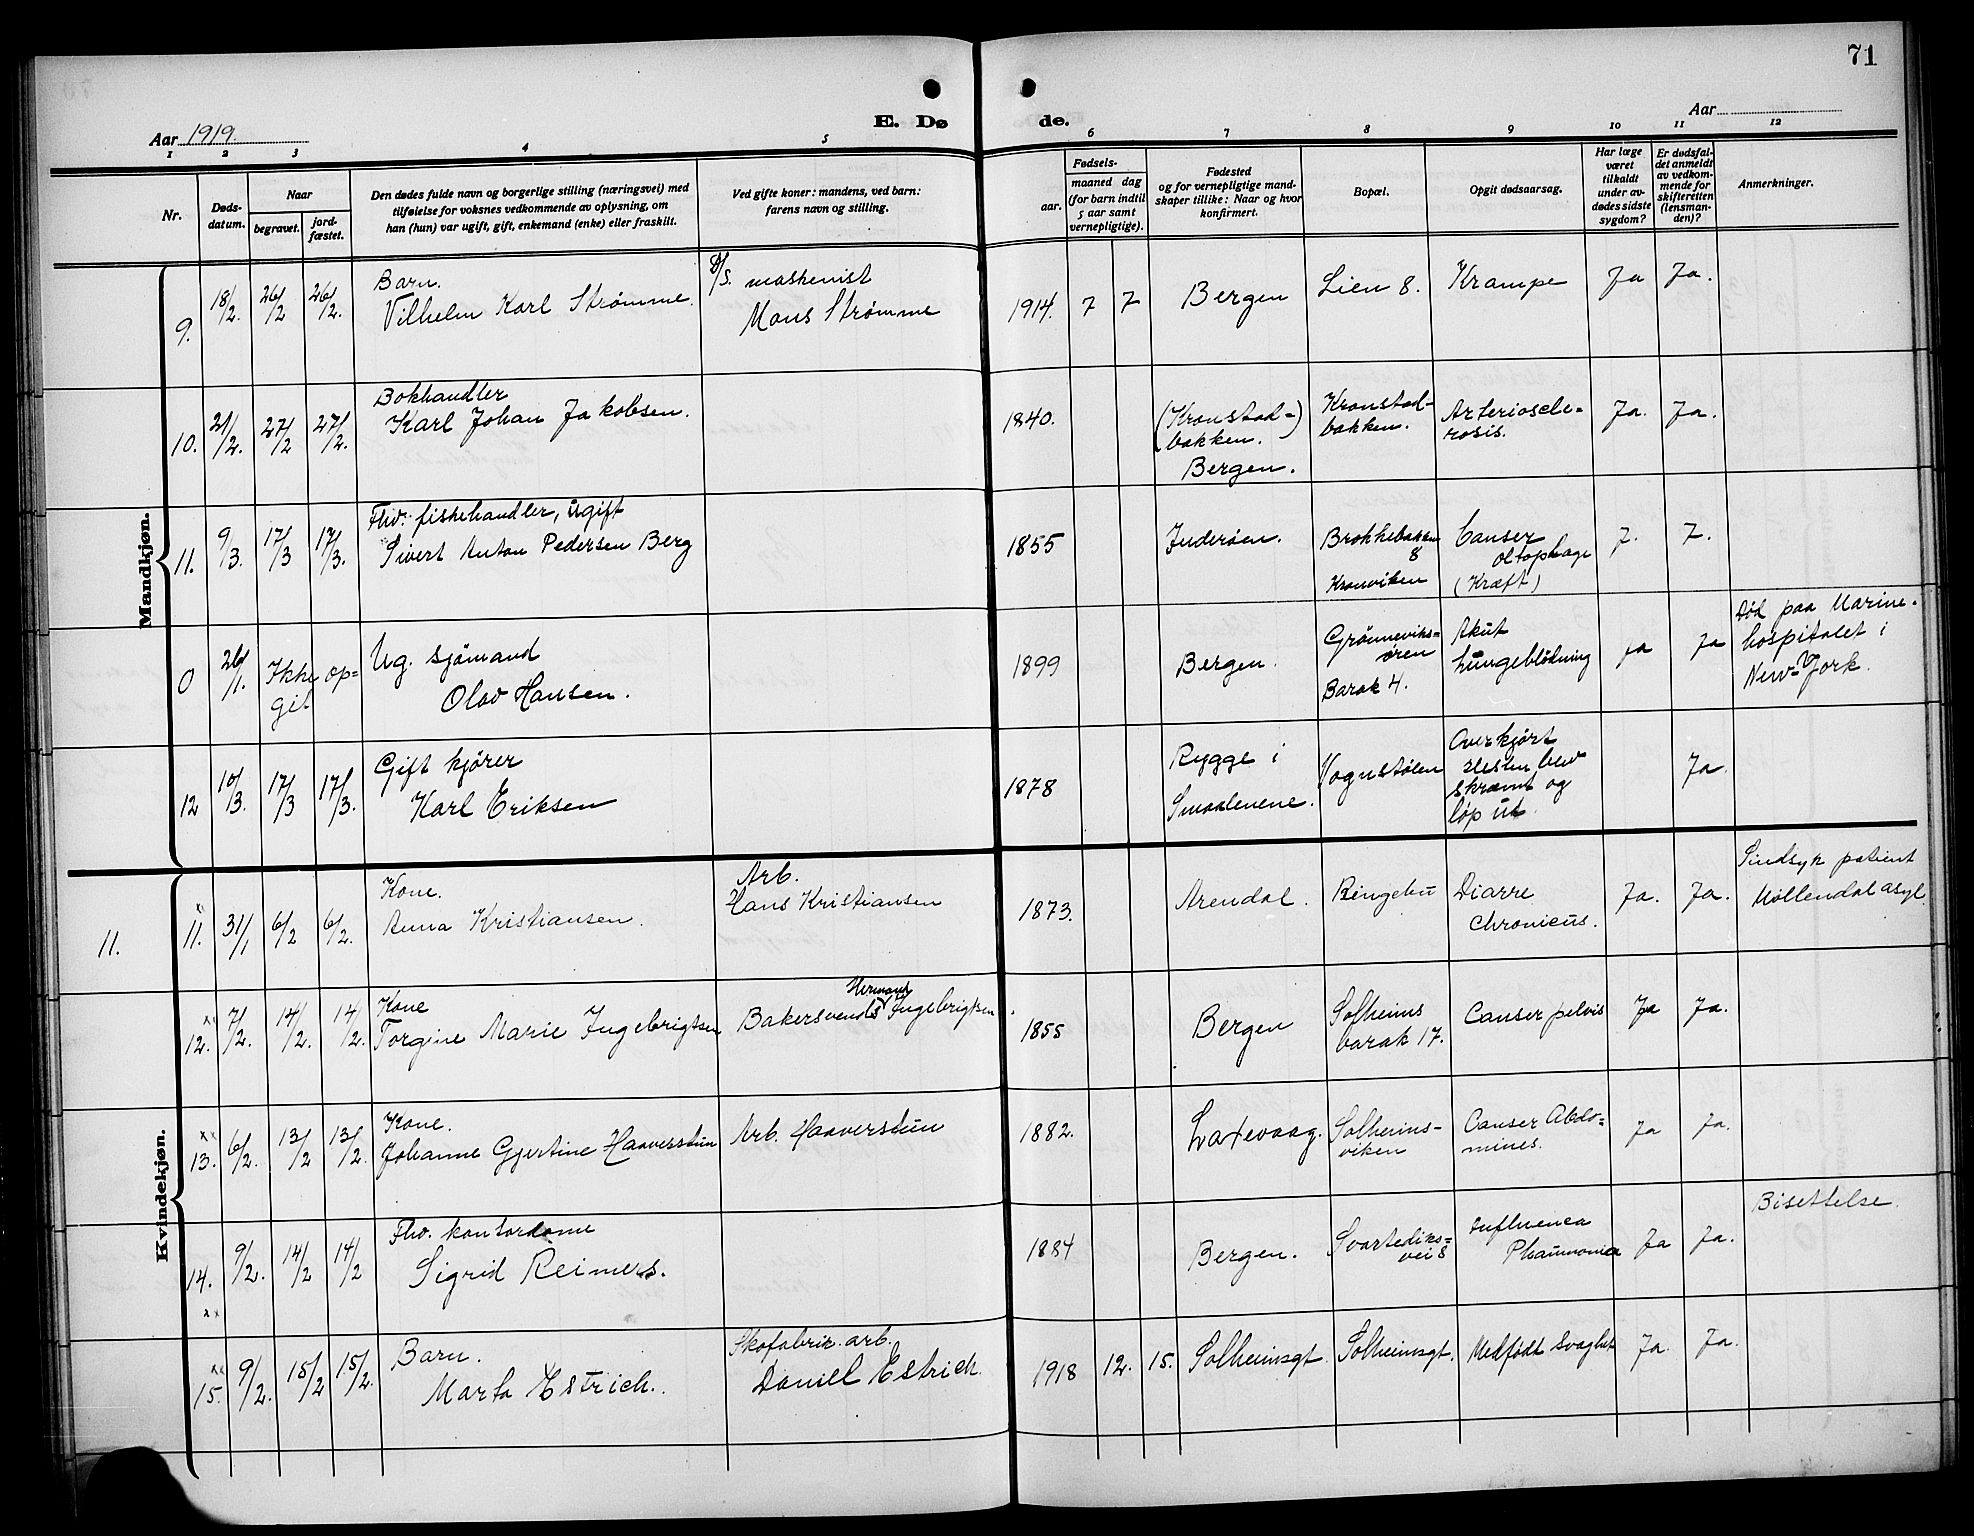 71
Aar 1919.
E. Døde.
Aar
1 2 3 4 5 6 7 8 9 10 11 12
Nr.
Døds-
datum.
Naar
begravet.
jord-
fæstet.
Den dødes fulde navn og borgerlige stilling (næringsvei) med
tilføielse for voksnes vedkommende av oplysning, om
han (hun) var ugift, gift, enkemand (enke) eller fraskilt.
Ved gifte koner: mandens, ved barn:
farens navn og stilling.
Fødsels-
aar.
maaned dag
(for barn indtil
5 aar samt
vernepligtige).
Fødested
og for vernepligtige mand-
skaper tillike: Naar og hvor
konfirmert.
Bopæl.
Opgit dødsaarsag.
Har læge
været
tilkaldt
under av-
dødes sidste
sygdom?
Er dødsfal-
det anmeldt
av vedkom-
mende for
skifteretten
(lensman-
den)?
Anmerkninger.
Mandkjøn.
9. 18/2. 26/2 26/2.
Barn.
Vilhelm Karl Strømme.
D/S. maskenist
Mons Strømme
1914. 7 7 Bergen Lien 8. Krampe Ja Ja.
10. 21/2. 27/2 27/2.
Bokhandler
Karl Johan Jakobsen.
1840.
(Kronstad-
bakken.)
Bergen.
Kronstad-
bakken.
Arterioscle-
rosis.
Ja. Ja.
11. 9/3. 17/3 17/3.
Fhv. fiskehandler, ugift
Sivert Anton Pedersen Berg
1855 Inderøen.
Brokkebakken
8
Kronviken
Canser
oltophage
(Kræft)
J. J.
0 26/1. Ikke op-
git
Ug. sjømand
Olav Hansen.
1899 Bergen.
Grønneviks-
øren
Barak 4.
Akut
lungeblødning
ja ja
Død paa Marine-
hospitalet i
New-York.
12 10/3. 17/3 17/3.
Gift kjører
Karl Eriksen
1878
Rygge i
Smaalenene.
Vognstølen
Overkjørt
Hesten blev
skræmt og
løp ut.
Ja.
Kvindekjøn.
11.
x
11. 31/1 6/2 6/2.
Kone.
Anna Kristiansen.
Arb.
Hans Kristiansen
1873. Arendal. Ringebu
Diarre
Chronicus.
Ja. Ja.
Sindsyk patient
Møllendal asyl
xx
12. 7/2. 14/2. 14/2.
Kone
Torgine Marie Ingebrigtsen
Hermand
Bakersvends Ingebrigtsen.
1855 Bergen
Solheims
barak 17.
Canser pelvis Ja Ja.
xx
13. 6/2. 13/2 13/2.
Kone.
Johanne Gjertine Haaverstun
Arb. Haaverstun
1882. Laxevaag.
Solheims-
viken
Canser Abdo-
mines.
Ja Ja.
14. 9/2. 14/2 14/2
xx
Fhv. kontordame
Sigrid Reimers.
1884 Bergen.
Svartediks-
vei 8
Influenca
Phaumonia
Ja Ja.
Bisettelse.
xx
15. 9/2. 15/2 15/2.
Barn.
Marta Estrich.
Skofabrik. arb.
Daniel Estrich.
1918 12. 15. Solheimsgt. Solheimsgt. Medfødt svaghet Ja. Ja.